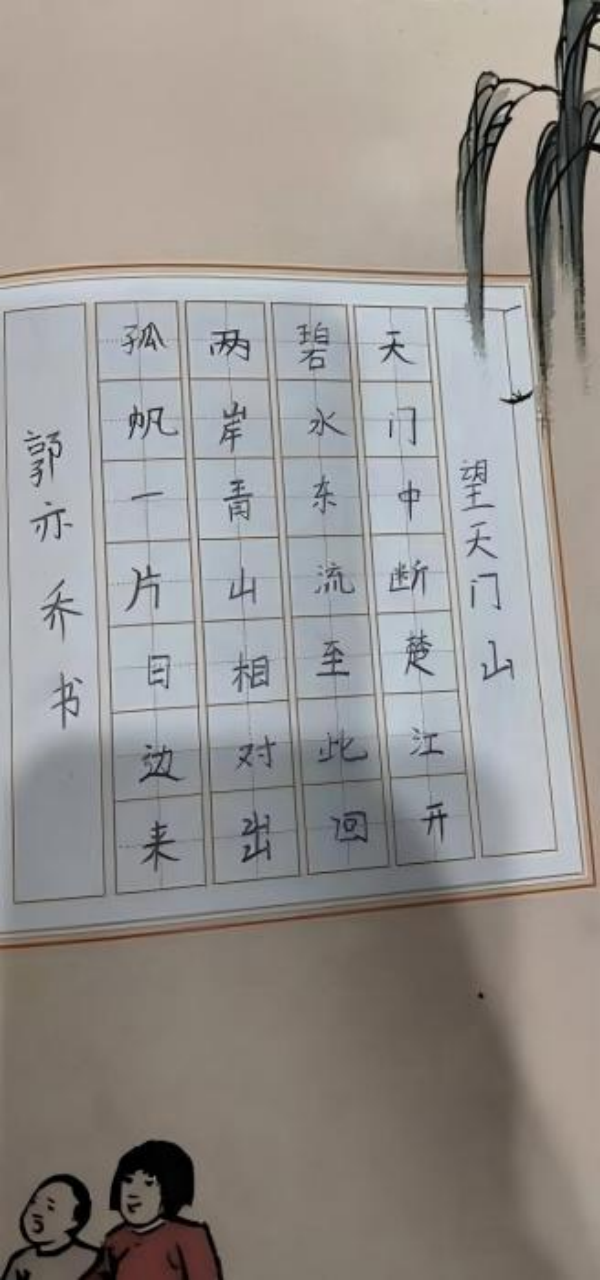 望天门山
天门中断楚江开
碧水东流至此回
两岸青山相对出
孤帆一片日边来
郭亦乔书